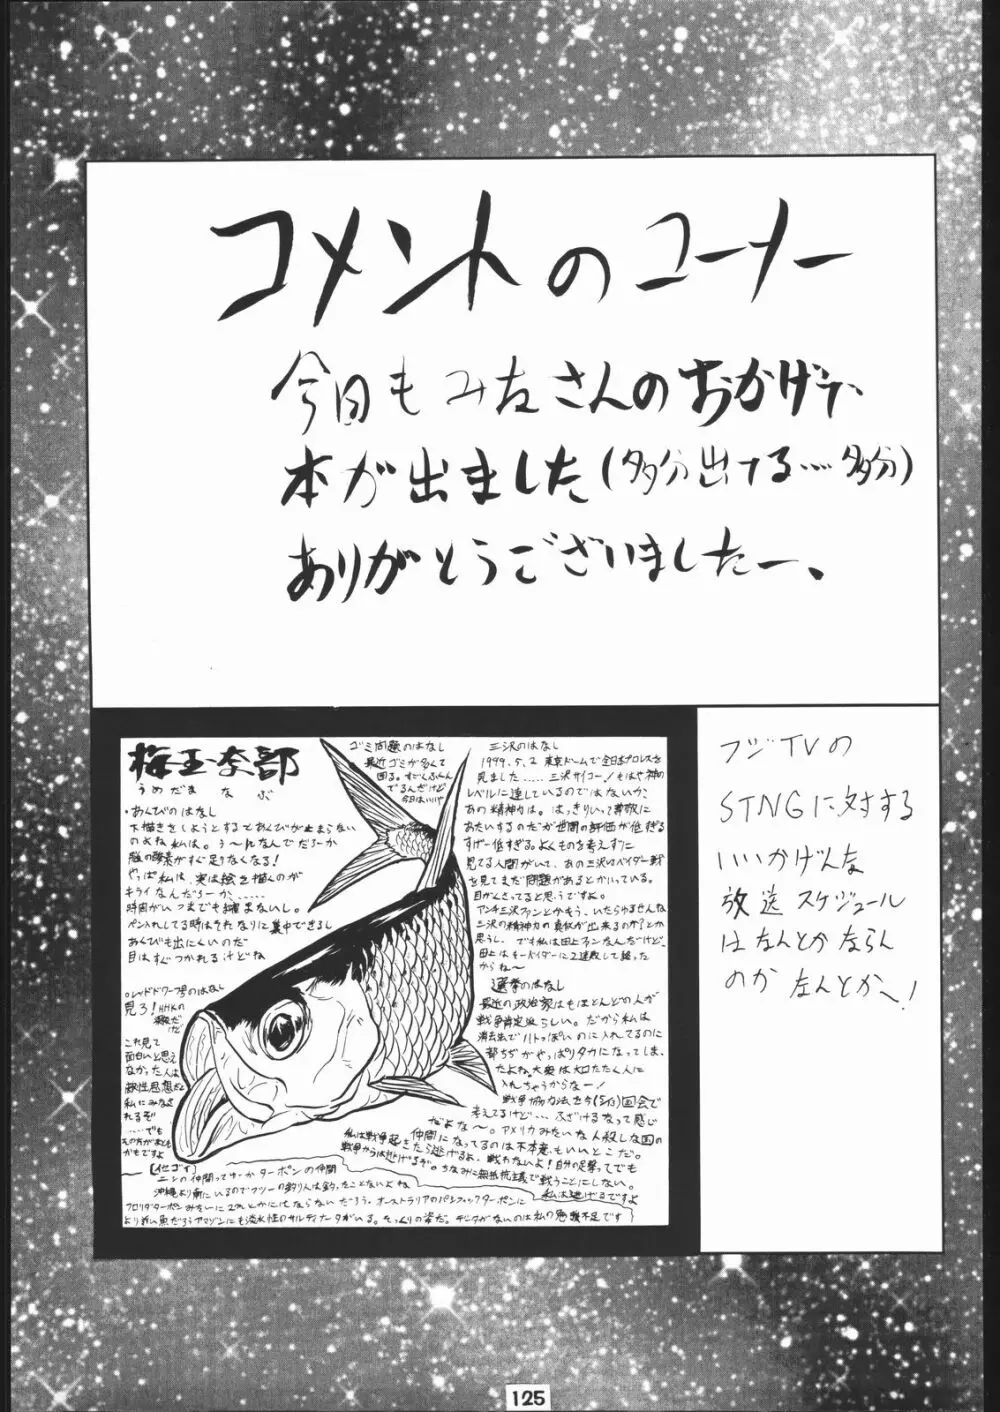 コメントのコーナー
今日もみなさんのおかげで、
本が出ました(多分出てる……多分)
ありがとうございましたー、
梅玉奈部
うめだまなぶ
・あくびのはなし
下描きをしようとするとあくびが止まらない
のよね 私は。う〜んなんでだろーか
脳の酸素がすぐ足りなくなる!
やっぱ私は、実は絵を描くのが
キライなんだろーか、……
時間がいつまでも縮まないし。
ペン入れしてる時はそれなりに集中できるし
あくびも出にくいのだ
目はすぐつかれるけどね
○レッドドワーフ号のはなし
見ろ!NHKの
深夜だ
けど
これ見て
面白いと思え
なかった人は
敵性思想だと
私にみなさ
れるぞ
……でも
その方が本とも
かもですよ
ゴミ問題のはなし
最近ゴミが多くて
困る。すごくふくん
でるんだけど
今日はいいや
三沢のはなし
1999.5.2 東京ドームで全日本プロレスを
見ました……三沢サイコー!もはや神の
レベルに達しているのではないか、
あの精神力は。はっきりいって尊敬に
あたいするのだが世間の評価が低すぎる
すげー低すぎる。よくものを考えずに
見てる人間がいて、あの三沢VSベイダー戦
を見てまだ問題があるとかいっている。
目がくさってると思うですよ。
アンチ三沢ファンとかもう、いたらゆるせんな
三沢の精神力の真似が出来るのか?とか
思うし。でも私は田上ファンなんだけど、
田上はそーベイダーに2連敗して終った
からね〜
選挙のはなし
最近の政治家はもほとんどの人が
戦争肯定派らしい。だから私は
消去法でハトっぽいのに入れてるのに
皆ちぢかやっぱりタカになってしま、
たよね。大奥は大口たたく人に
入れちゃうからなー!
戦争協力法を今(5/13)国会で
考えてるけど… ふざけるなって感じ
だよな〜。アメリカみたいな人殺しな国の
仲間になってるのは不本意、もいいとこだ。
私は戦争起きたら逃げるよ、戦わないよ!自分の足撃ってでも
戦争からは逃げるぞ。ちなみに無抵抗主義で戦うことにしない。
私は逃げるですよ
[イセゴイ]
ニシンの仲間ってゆーかターポンの仲間
沖縄より南にいるのでフツーの釣り人は釣ったことないよね
フロリダターポンみたいに2mとかにはならないだろう。オーストラリアのパシフィックターポンに
より近い魚だろうアマゾンにも淡水性のサルディナータがいる。そっくりの姿だ。データがないのは私の勉強不足です
フジTVの
STNGに対する
いいかげんな
放送スケジュール
はなんとかならん
のか なんとかへ!
125